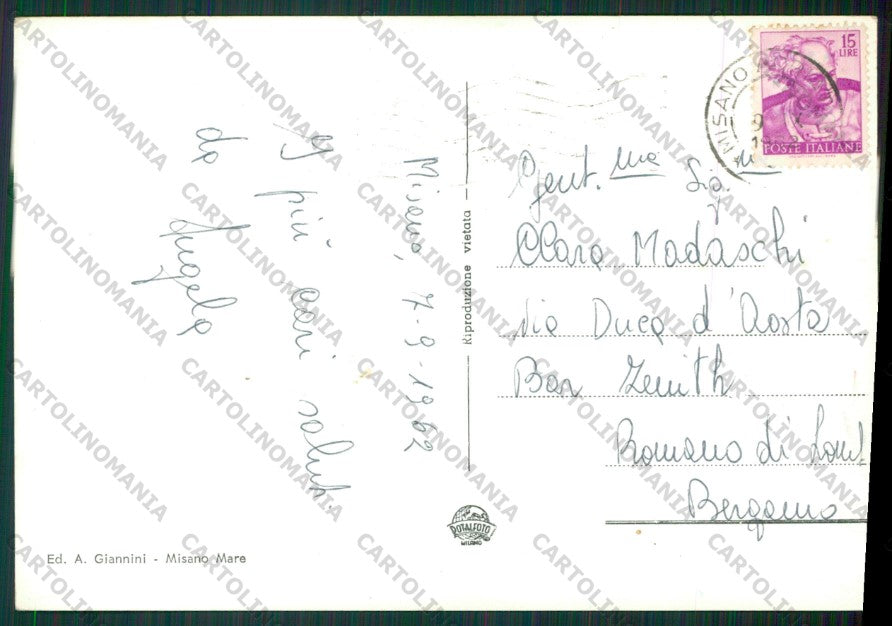 Misano, 7-9-1962
I più cari saluti
da Angela
Riproduzione vietata
ROTALFOTO
MILANO
Ed. A. Giannini - Misano Mare
15
LIRE
POSTE ITALIANE
MISANO
Gent.ma Sig.na
Clara Madaschi
Via Duca d'Aosta
Bar Zenith
Romano di Lomb.
Bergamo
CARTOLINOMANIA